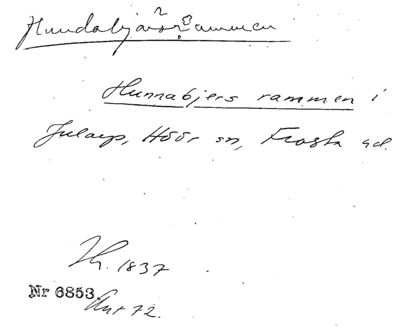 Hundabjärsrammen
Hunnabjers rammen i
Jularp, Höör sn, Frosta hd.
1837
Nr 6853
Akt 72.